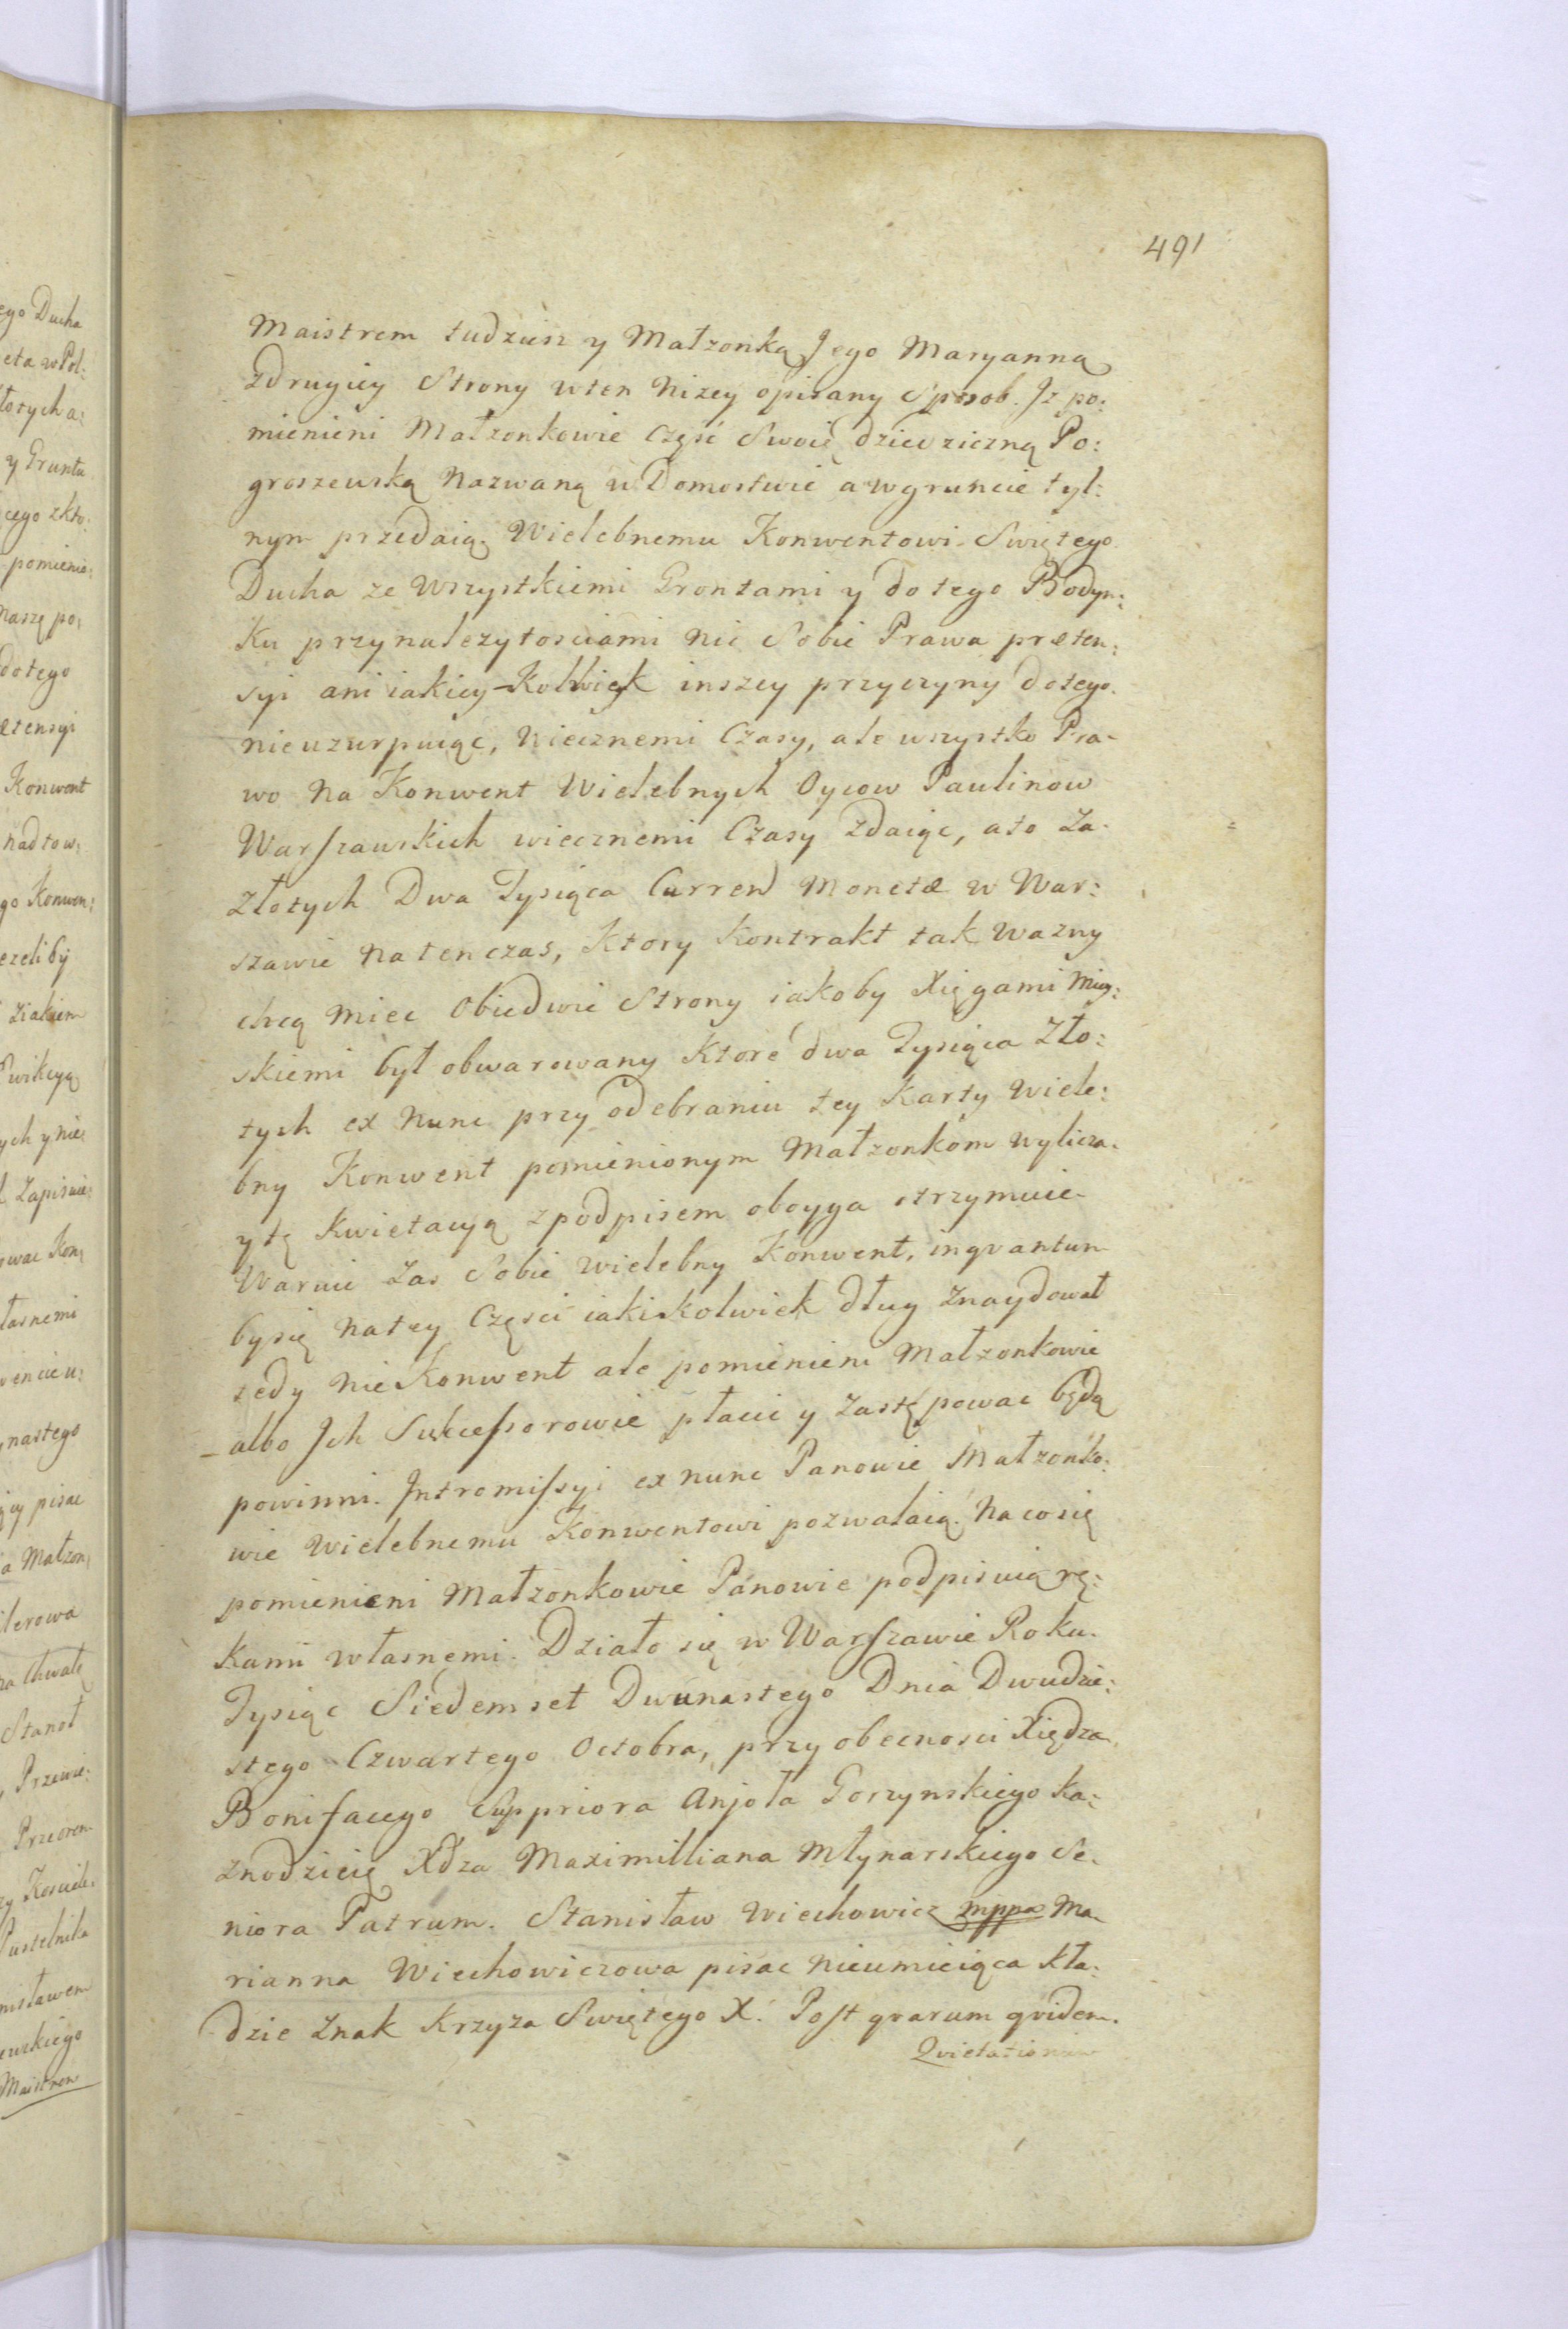 491
Maistrem tudziesz y Małzonką Jego Maryanną
zdrugiey Strony wten Nizey opisany Sposob. Jz po:
mienieni Małzonkowie Część Swoię dziedziczną Po:
groszewską Nazwaną w Domostwie a w gruncie tyl:
nym przedaią Wielebnemu Konwentowi Swiętego
Ducha ze Wszystkiemi Grontami y do tego Bodyn:
Ku przynalezytosciami Nic Sobie Prawa præten:
syi ani iakiey-Kolwiek inszey przyczyny dotego.
nieuzurpuiąc, Wiecznemi Czasy, ale wszystko Pra-
wo Na Konwent Wielebnych Oycow Paulinow
Warszawskich wiecznemi Czasy Zdaiąc, a to Za
Złotych Dwa Tysiąca Curren Monetæ w War:
szawie Na ten czas, Ktory Kontrakt tak Wazny
chcą Miec Obiedwie Strony iakoby Xięgami Miey:
skiemi był obwarowany Ktore dwa Tysiąca Zło:
tych ex Nunc przy odebraniu tey Karty Wiele:
bny Konwent pomienionym Małzonkom wylicza.
y tę Kwietacyą z podpisem oboyga otrzymuie
Waruie Zas Sobie Wielebny Konwent, inqvantum
by się Na tey Częsci iakiskolwiek dług Znaydował
tedy Nie Konwent ale pomienieni Małzonkowie
albo Jch Sukcessorowie płacic y Zastępowac będą
powinni. Jntromissyi ex nunc Panowie Małzonko:
wie Wielebnemu Konwentowi pozwalaią. Na co się
pomienieni Małzonkowie Panowie podpisuią rę:
Kami własnemi. Działo się w Warszawie Roku
Tysiąc Siedemset Dwunastego Dnia Dwudzie:
stego Czwartego Octobra, przy obecnosci Xiędza
Bonifacego Suppriora Anjoła Gorzynskiego Ka:
znodzieię Xdza Maximilliana Młynarskiego Se:
niora Patrum. Stanisław Wiechowicz mppa Ma
rianna Wiechowiczowa pisac Nieumieiąca Kła:
dzie Znak Krzyza Swiętego X. Post qvarum qvidem.
Qvietationum